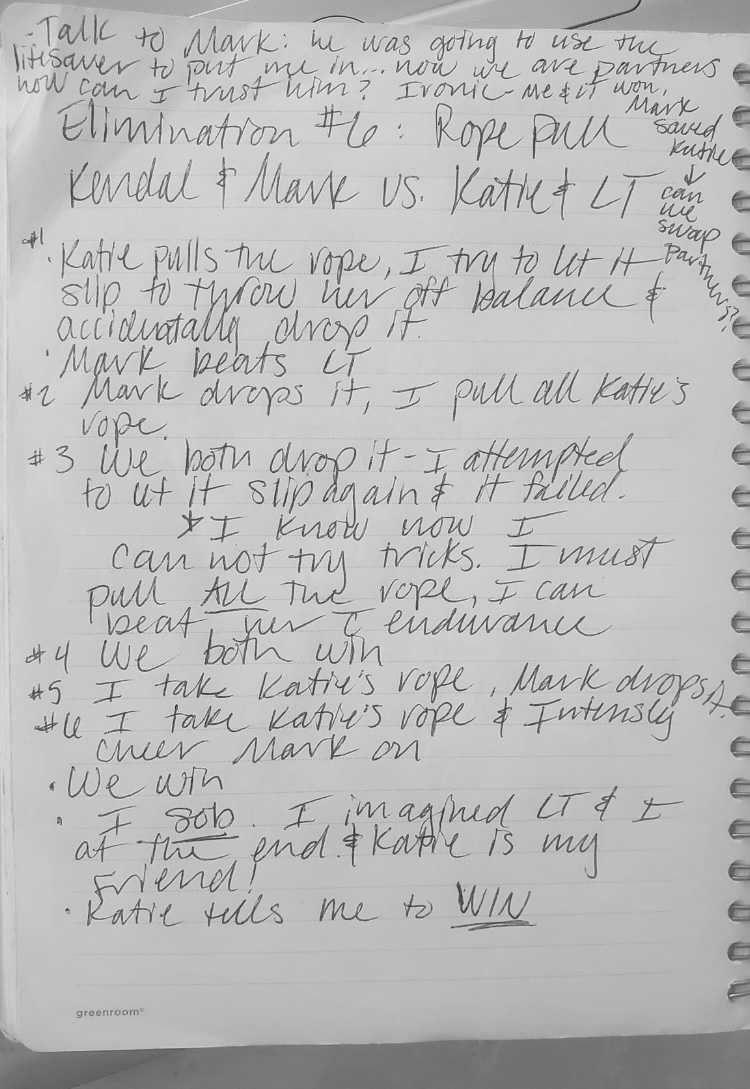 - Talk to Mark: he was going to use the
lifesaver to put me in... now we are partners
how can I trust him? Ironic - me & it won.
Mark
saved
Katie
↓
can
we
swap
partners?!
Elimination #6: Rope pull
Kendal & Mark vs. Katie & LT
#1
· Katie pulls the rope, I try to let it
slip to throw her off balance &
accidentally drop it.
· Mark beats LT
#2 Mark drops it, I pull all Katie's
rope.
#3 We both drop it - I attempted
to let it slip again & it failed.
* I know now I
can not try tricks. I must
pull ALL the rope, I can
beat her c̄ endurance
#4 We both win
#5 I take Katie's rope, Mark drops it.
#6 I take Katie's rope & Intensly
cheer Mark on
· We win
· I sob. I imagined LT & I
at the end. & Katie is my
friend!
· Katie tells me to WIN
greenroom®